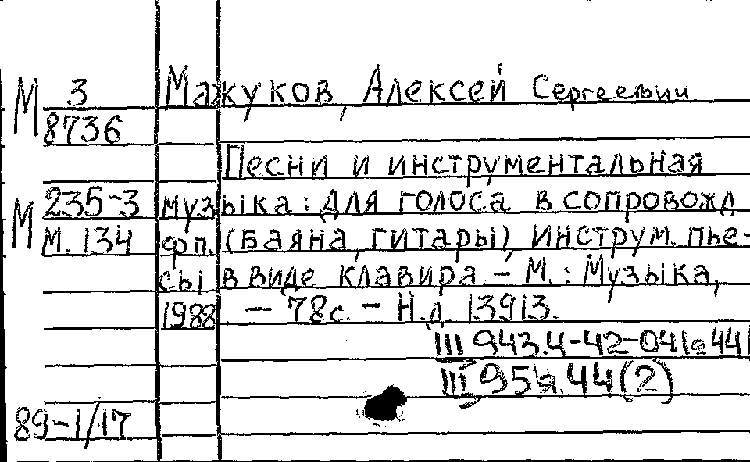 М 3 Мажуков, Алексей Сергеевич
8736
Песни и инструментальная
М 235-3 музыка: для голоса в сопровожд
М. 134 фп. (баяна, гитары), инструм. пье-
сы в виде клавира - М.: Музыка,
1988 - 78с. - Н.д. 13913.
III 943.4-42-04
III 95я 44(2)
89-1/17